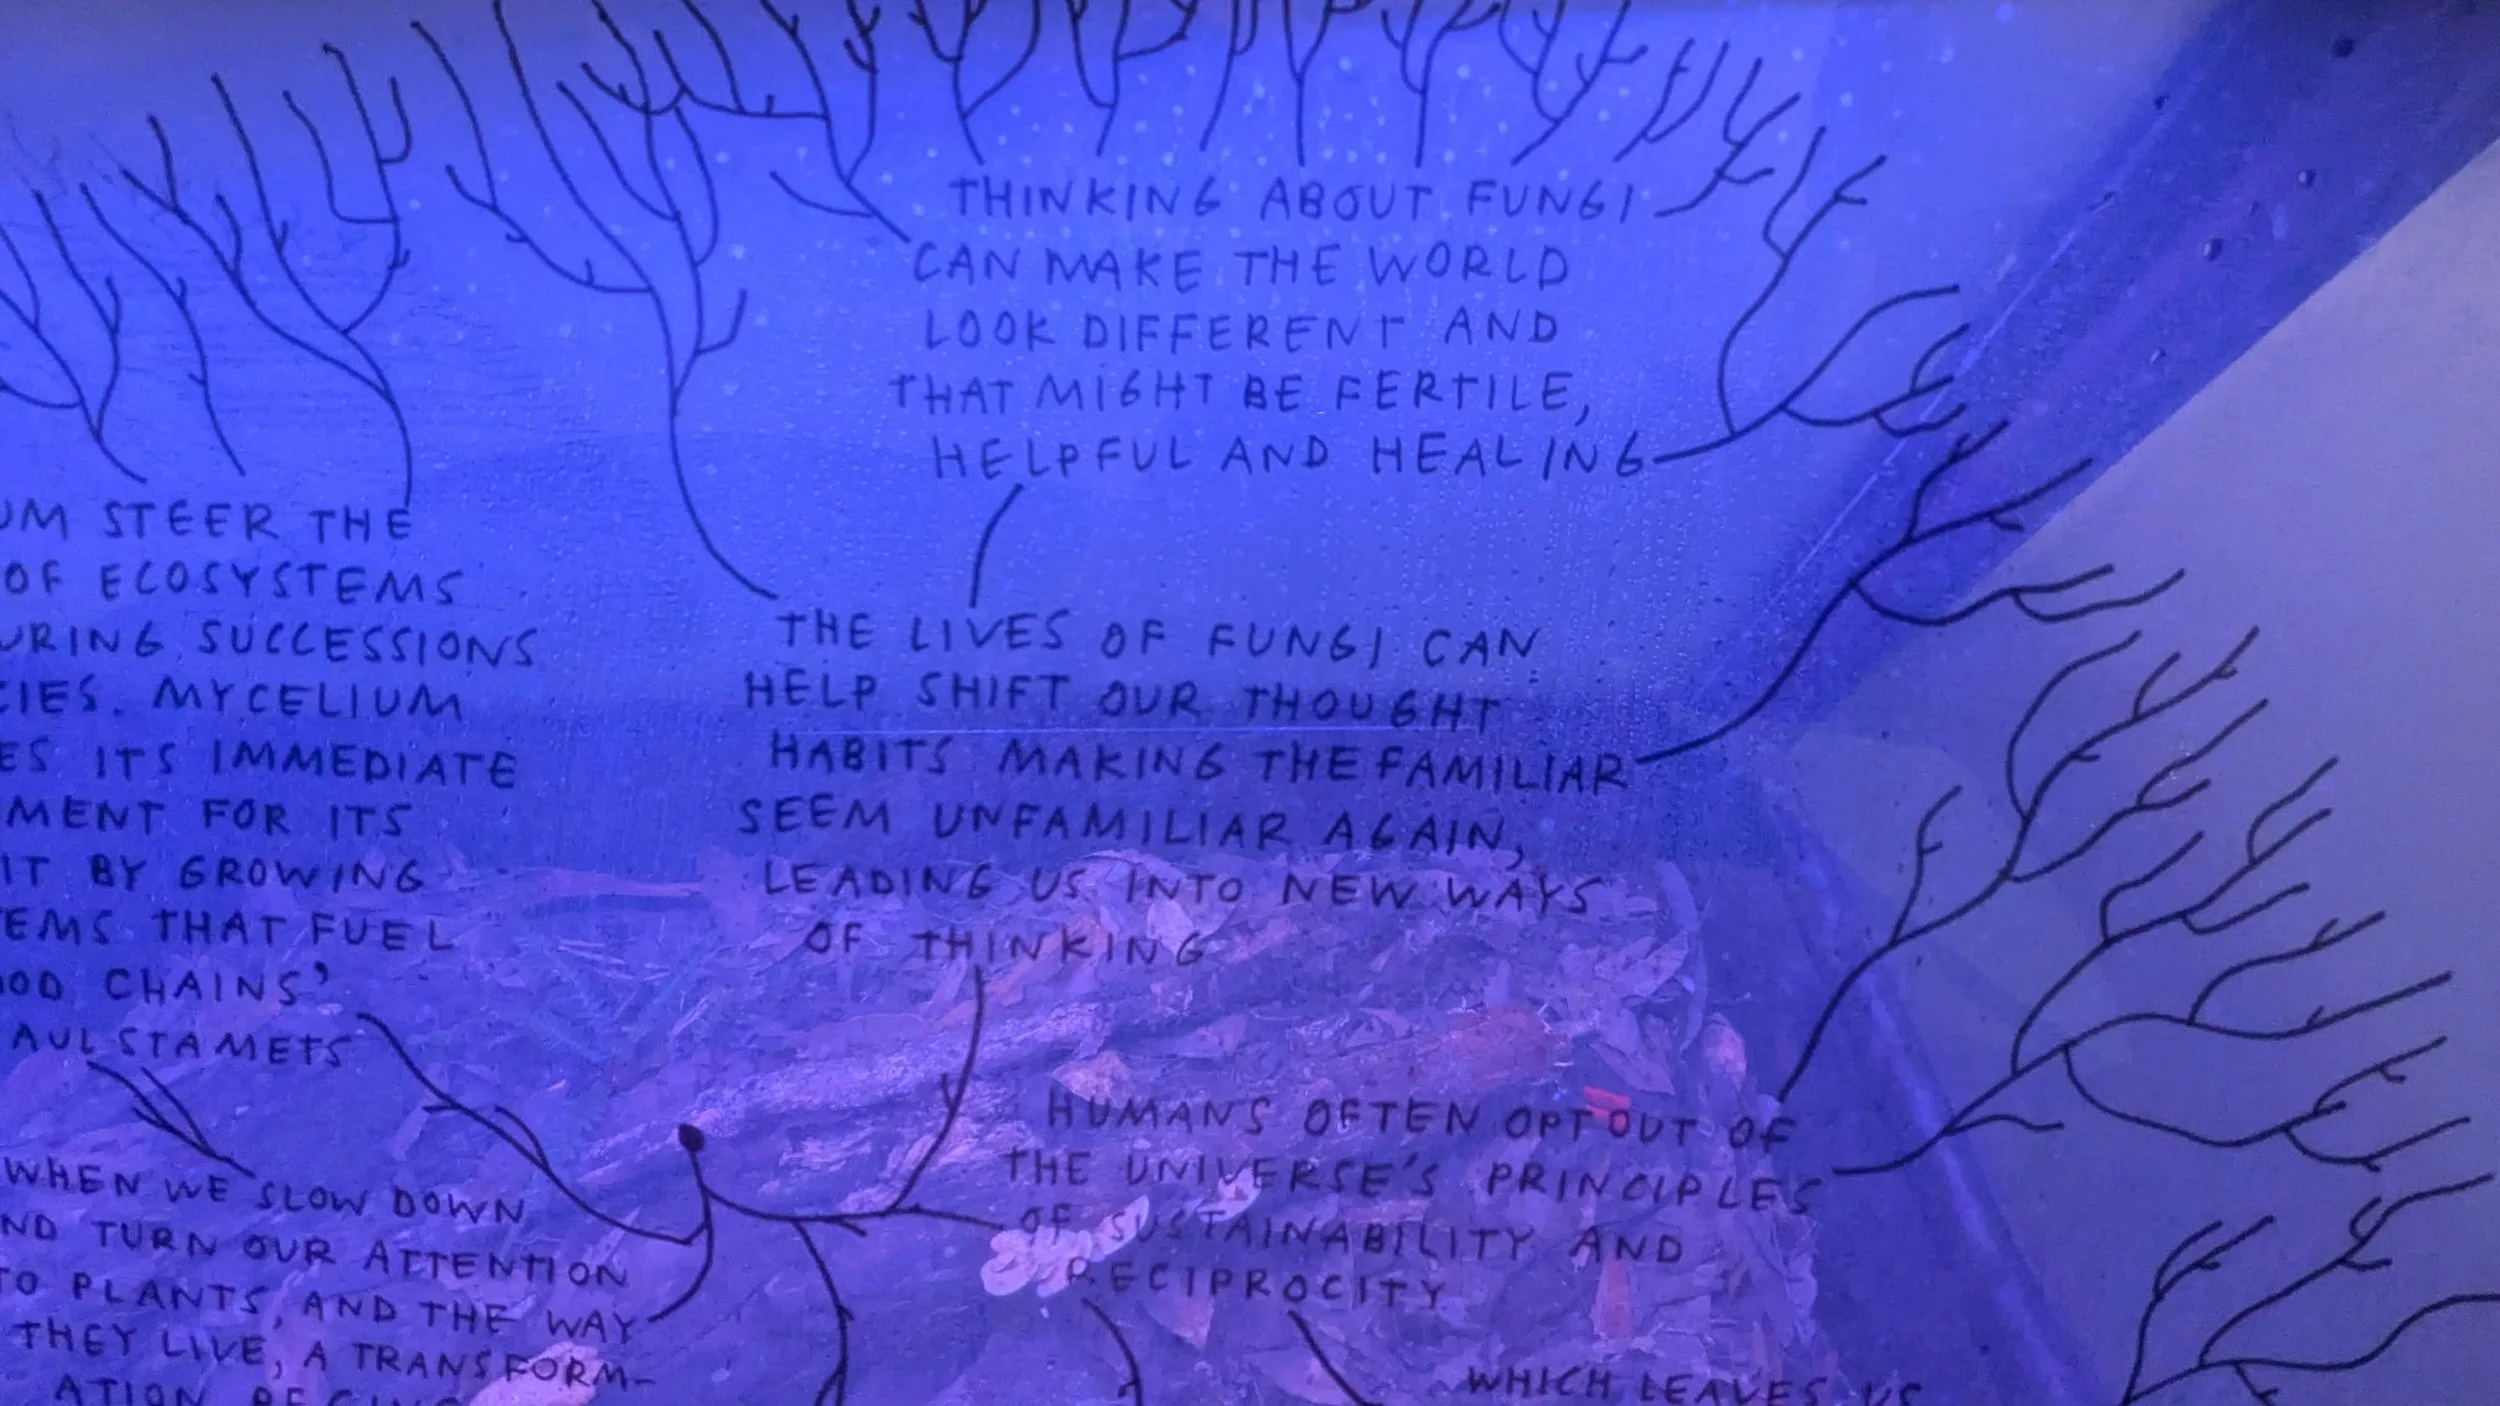 THINKING ABOUT FUNGI
CAN MAKE THE WORLD
LOOK DIFFERENT AND
THAT MIGHT BE FERTILE,
HELPFUL AND HEALING
THE LIVES OF FUNGI CAN
HELP SHIFT OUR THOUGHT
HABITS MAKING THE FAMILIAR
SEEM UNFAMILIAR AGAIN,
LEADING US INTO NEW WAYS
OF THINKING
STEER THE
OF ECOSYSTEMS
SUCCESSIONS
MYCELIUM
ITS IMMEDIATE
FOR ITS
IT BY GROWING
THAT FUEL
CHAINS’
STAMETS
WHEN WE SLOW DOWN
TURN OUR ATTENTION
TO PLANTS, AND THE WAY
THEY LIVE, A TRANSFORM-
ATION
HUMANS OFTEN OPT OUT OF
THE UNIVERSE'S PRINCIPLES
OF SUSTAINABILITY AND
RECIPROCITY
WHICH LEAVES US